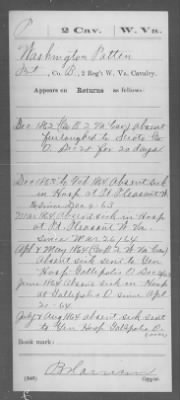 P 2 Cav. W. Va.
Washington Pattin
Pvt, Co. B, 2 Reg't W. Va. Cavalry.
Appears on Returns as follows:
Dec 1862 (Co B 2 W Va Cav) absent
furloughed to Scioto Co
O. Dec 25 for 20 days
Dec 1863 to Feb 1864 Absent sick
in Hosp at Pt Pleasant W.
Va since Dec 9-63
Mar 1864 Absent sick in Hosp
at Pt Pleasant W Va
since Mar 26/64
Apl & May 1864 (Co B 2 W Va Cav)
absent sick sent to Gen
Hosp Gallipolis O
June 1864 Absent sick in Hosp
at Gallipolis O since Apr
20-64
July & Aug 1864 absent sick sent
to Gen Hosp Gallipolis O.
Book mark:
(546)
Copyist.